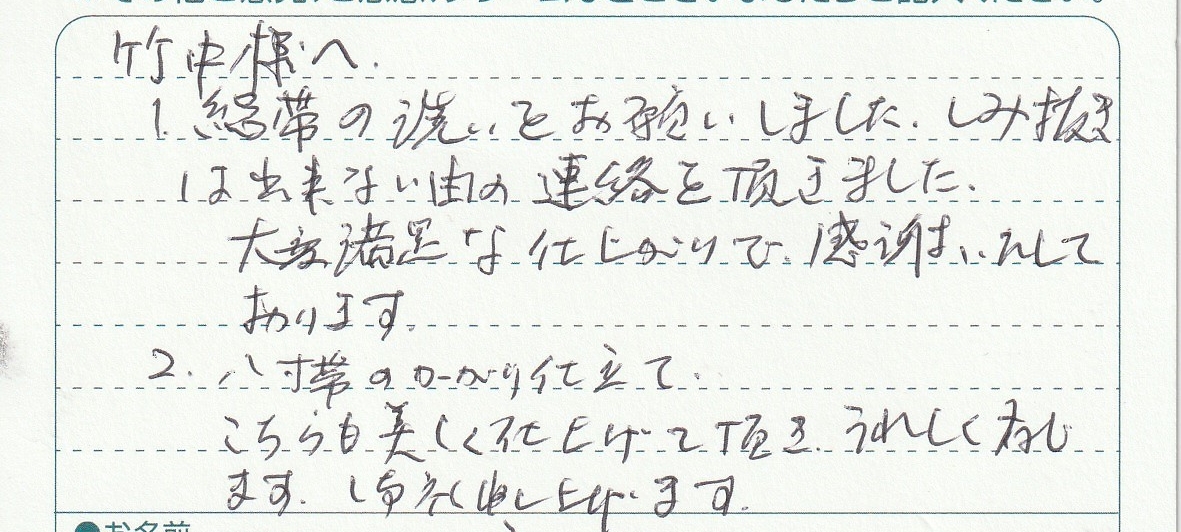 竹中様へ.
1. 綿帯の洗いをお願いしました. しみ抜き
は出来ない由の連絡を頂きました.
大変満足な仕上がりで. 感謝いたして
おります.
2. 八寸帯のかがり仕立て.
こちらも美しく仕上げて頂き. うれしく存じ
ます. 御礼申し上げます.
●お名前